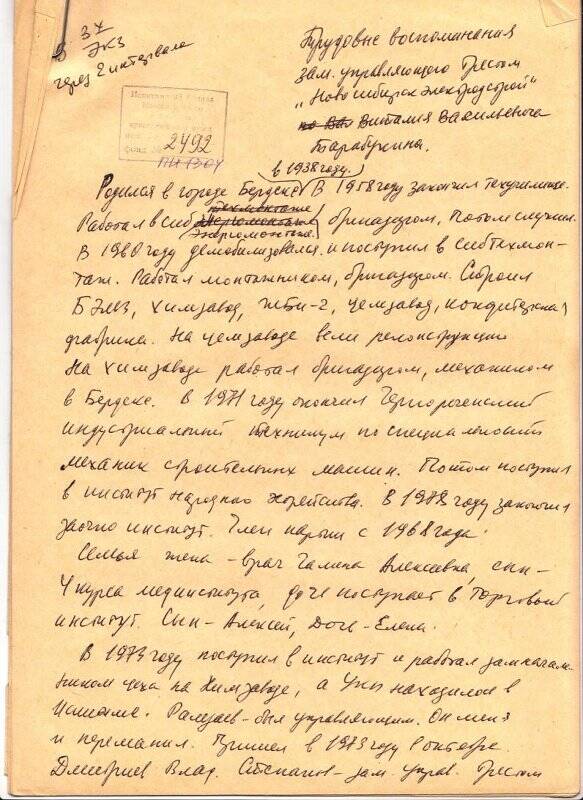 3х
экз
через 2 интервала
Трудовые воспоминания
зам. управляющего Трестом
"Новосибирскэлектродстрой"
Виталия Васильевича
Тарабукина.
2492
в 1938 году.
Родился в городе Бердске. В 1958 году закончил техучилище.
Работал в Сиб
Энергомонтаже бригадиром, потом служил.
В 1960 году демобилизовался и поступил в Сибтехмон-
таж. Работал монтажником, бригадиром. Строил
БЭМЗ, химзавод, ЖБИ-2, цемзавод, кондитерская
фабрика. На цемзаводе вели реконструкцию
На химзаводе работал бригадиром, механиком
в Бердске. В 1971 году окончил
индустриальный техникум по специальности
механик строительных машин. Потом поступил
в институт народного хозяйства. В 1978 году закончил
заочно институт. Член партии с 1968 года.
Семья жена - врач Галина Алексеевна, сын-
4 курса мединститута, дочь поступает в Торговый
институт. Сын - Алексей, Дочь - Елена.
В 1973 году поступил в институт и работал зам начальни-
ником цеха на Химзаводе, а УКП находилось в
Искитиме. был управляющим. Он меня
и переманил. Пришел в 1973 году в октябре.
Дмитриев Влад. Степанов - зам. управ. Трестом